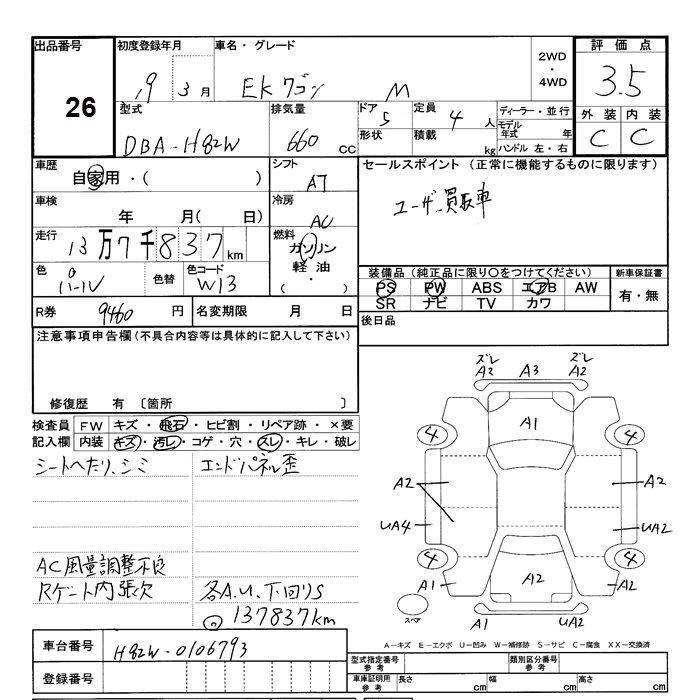 出品番号 初度登録年月 車名・グレード 2WD・4WD 評価点
26 19 3月 EKワゴン M 3.5
型式 排気量 ドア 5 定員 4人 ディーラー・並行 外装 内装
DBA-H82W 660 cc 形状 積載 kg モデル年式 年 C C
ハンドル 左・右
車歴 シフト セールスポイント (正常に機能するものに限ります)
自家用・( ) AT
ユーザー買取車
車検 年 月( 日) 冷房 AC
走行 13万7千837km 燃料 ガソリン 軽油 ・( )
装備品 (純正品に限り〇をつけてください) 新車保証書
色 パール 色替 色コード W13
PS PW ABS エアB AW 有・無
SR ナビ TV カワ
R券 9460 円 名変期限 月 日
後日品
注意事項申告欄(不具合内容等は具体的に記入して下さい)
修復歴 有 〔箇所 〕
検査員記入欄 FW キズ・飛石・ヒビ割・リペア跡・×要
内装 キズ・汚レ・コゲ・穴・スレ・キレ・破レ
シートヘたり、シミ エンドパネル歪
AC風量調整不良
Rゲート内張欠 各A.U.下回りS
137837km
ズレ A2 A3 ズレ A2
A1
4 4
A2 A2
UA4 UA2
4 4
A1 A2 A1
スペア A1 UA2
A-キズ E-エクボ U-凹み W-補修跡 S-サビ C-腐食 XX-交換済
車台番号 H82W-0106793
型式指定番号 参考 類別区分番号 参考
登録番号
車庫証明用 参考 長さ cm 幅 cm 高さ cm